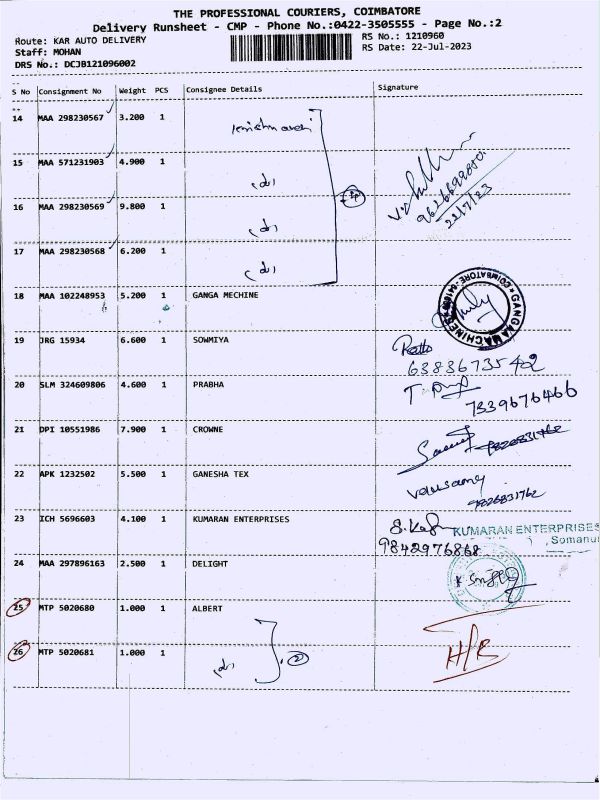 THE PROFESSIONAL COURIERS, COIMBATORE
Delivery Runsheet - CMP - Phone No.:0422-3505555 - Page No.:2
Route: KAR AUTO DELIVERY
Staff: MOHAN
DRS No.: DCJB121096002
RS No.: 1210960
RS Date: 22-Jul-2023
S No Consignment No Weight PCS Consignee Details Signature
14 MAA 298230567 3.200 1
15 MAA 571231903 4.900 1
16 MAA 298230569 9.800 1
22/7/23
17 MAA 298230568 6.200 1
18 MAA 102248953 5.200 1 GANGA MECHINE
19 JRG 15934 6.600 1 SOWMIYA
63836735402
20 SLM 324609806 4.600 1 PRABHA
7339676466
21 DPI 10551986 7.900 1 CROWNE
22 APK 1232502 5.500 1 GANESHA TEX
9826831762
23 ICH 5696603 4.100 1 KUMARAN ENTERPRISES
KUMARAN ENTERPRISES
Somanur
9842976868
24 MAA 297896163 2.500 1 DELIGHT
25 MTP 5020680 1.000 1 ALBERT
26 MTP 5020681 1.000 1
H/R